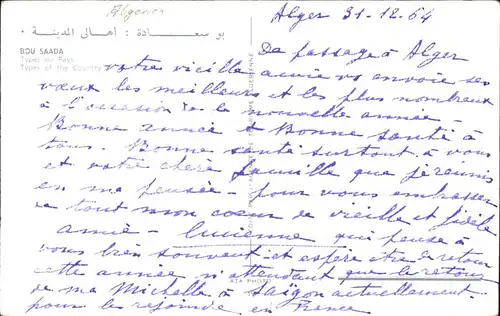 Algerien
Alger 31-12-64
بو سعادة : أهالي المدينة
BOU SAADA
Types du Pays
Types of the Country
De passage à Alger
votre vieille amie vs envoie ses
vœux les meilleurs et les plus nombreux
à l'occasion de la nouvelle année -
Bonne année & Bonne santé à
tous. Bonne santé surtout à vous
et votre chère famille que je réunis
en ma pensée - pour vous embrasser
de tout mon cœur de vieille et fidèle
amie - Lucienne qui pense à
vous bien souvent et espère être de retour
cette année n'attendant que le retour
de ma Michelle à Saïgon actuellement.
pour la rejoindre en France